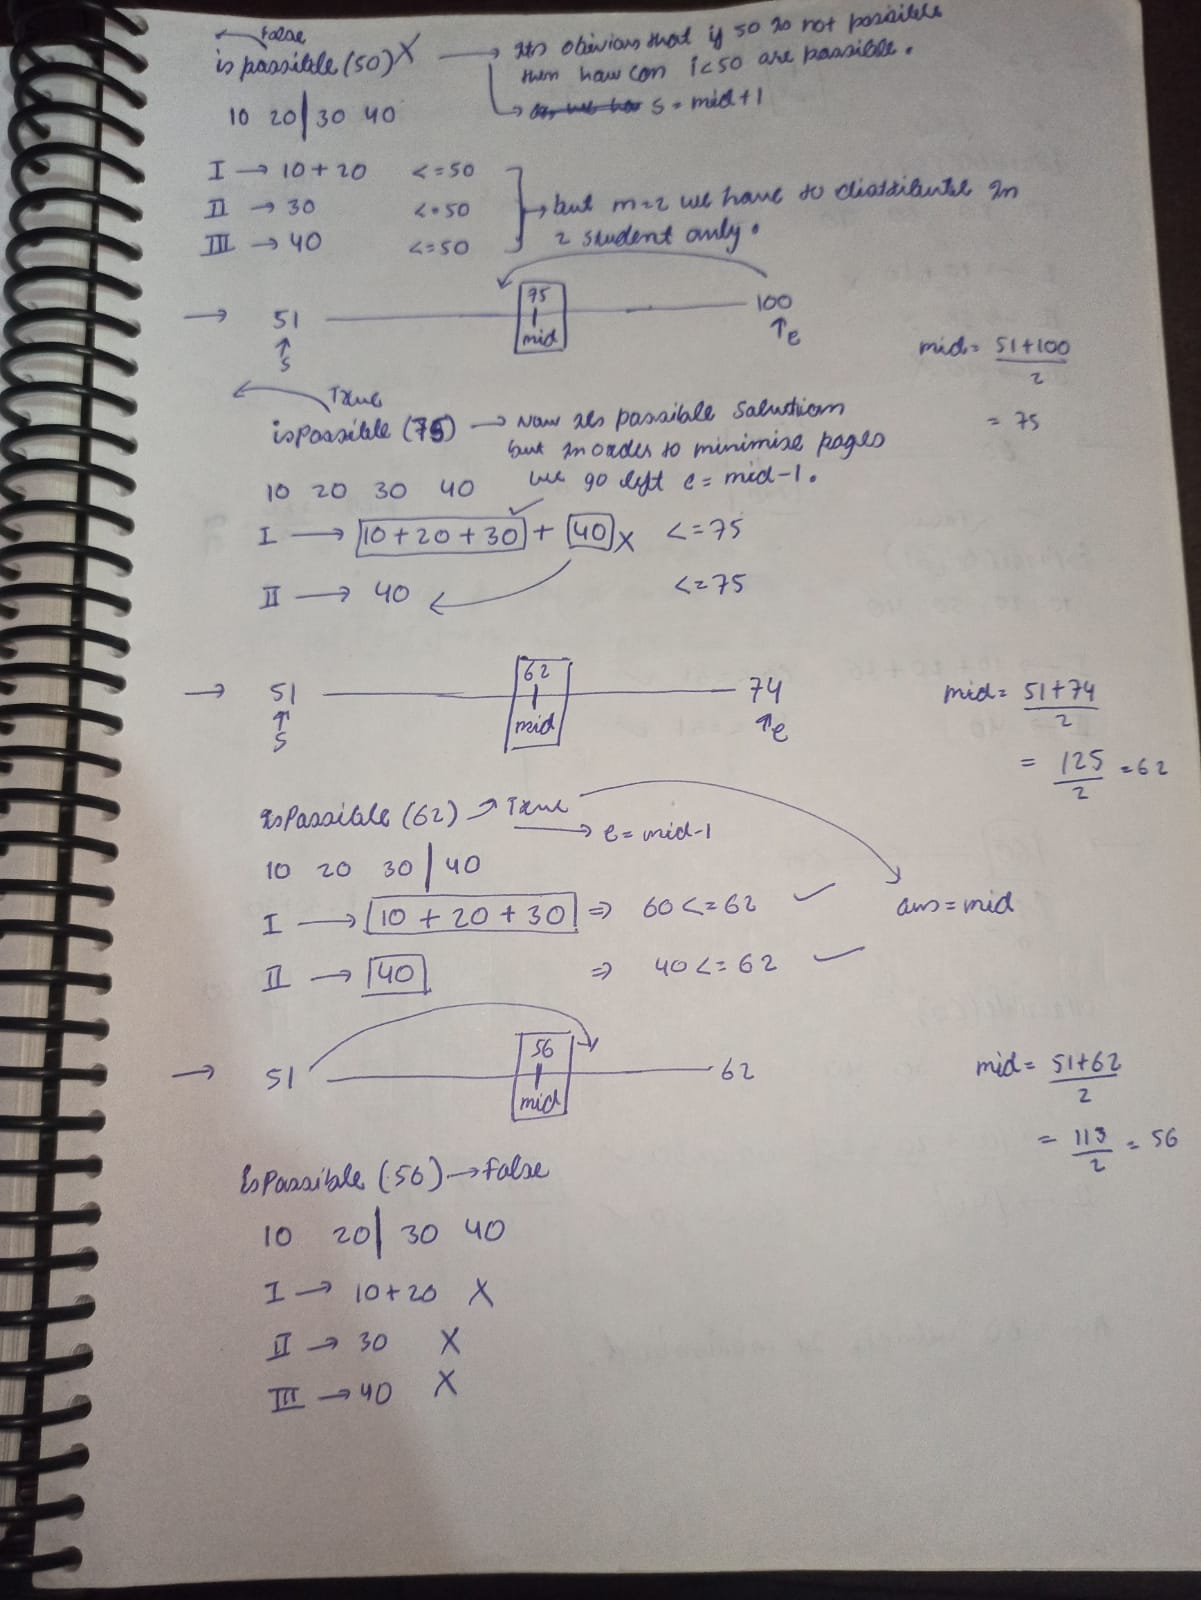 False
is possible (50) X → Its obivious that if 50 is not possible
then how can i<50 are possible.
→ s = mid+1
10 20 | 30 40
I → 10+20 <=50
II → 30 <=50
III → 40 <=50
→ but m=2 we have to distribute in
2 student only.
75
→ 51 mid 100
↑ s ↑ e
mid = 51+100 / 2
= 75
True
isPossible (75) → Now its possible solution
but in order to minimise pages
we go left e = mid-1.
10 20 30 40
I → 10+20+30 ✓ + 40 X <=75
II → 40 <=75
62
→ 51 mid 74
↑ s ↑ e
mid = 51+74 / 2
= 125 / 2 = 62
isPossible (62) → True
→ e = mid-1
ans = mid
10 20 30 | 40
I → 10 + 20 + 30 ⇒ 60 <= 62 ✓
II → 40 ⇒ 40 <= 62 ✓
56
→ 51 mid 62
mid = 51+62 / 2
= 113 / 2 = 56
isPossible (56) → False
10 20 | 30 40
I → 10+20 X
II → 30 X
III → 40 X